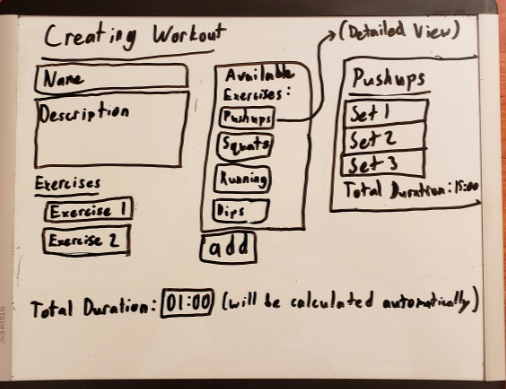 Creating Workout
Name
Description
Exercises
Exercise 1
Exercise 2
Available
Exercises:
Pushups
Squats
Running
Dips
add
(Detailed View)
Pushups
Set 1
Set 2
Set 3
Total Duration: 15:00
Total Duration: 01:00 (will be calculated automatically)